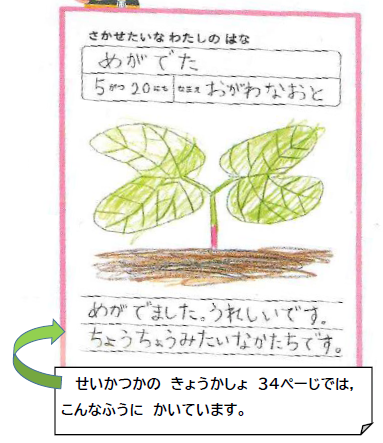 さかせたいな わたしの はな
めがでた
5がつ 20にち なまえ おがわなおと
めがでました。うれしいです。
ちょうちょうみたいなかたちです。
せいかつかの きょうかしょ 34ぺーじでは,
こんなふうに かいています。